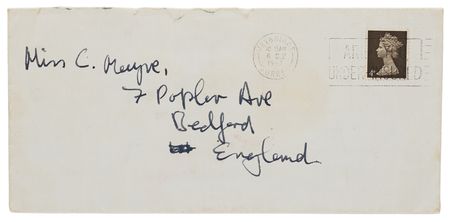 Miss C. Meyve,
7 Poplar Ave
Bedford
England
SURREY
4D